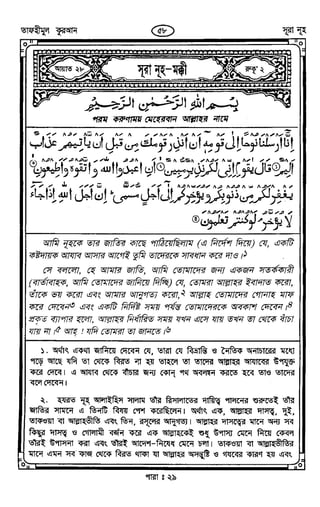 তাফহীমুল কুরআন
৫৮
সূরা নূহ
আয়াত ২৮
সূরা নূহ-মক্কী
রুকূ' ২
بِسْمِ اللهِ الرَّحْمٰنِ الرَّحِيْمِ
পরম করুণাময় মেহেরবান আল্লাহর নামে
اِنَّا اَرْسَلْنَا نُوْحًا اِلٰى قَوْمِهٖ اَنْ اَنْذِرْ قَوْمَكَ مِنْ قَبْلِ اَنْ يَّاْتِيَهُمْ عَذَابٌ
اَلِيْمٌ ۞ قَالَ يٰقَوْمِ اِنِّىْ لَكُمْ نَذِيْرٌ مُّبِيْنٌ ۞ اَنِ اعْبُدُوا اللهَ وَاتَّقُوْهُ وَاَطِيْعُوْنِ ۞
يَغْفِرْ لَكُمْ مِّنْ ذُنُوْبِكُمْ وَيُؤَخِّرْكُمْ اِلٰى اَجَلٍ مُّسَمًّى ؕ اِنَّ اَجَلَ اللهِ اِذَا جَآءَ
لَا يُؤَخَّرُ ۘ لَوْ كُنْتُمْ تَعْلَمُوْنَ ۞
আমি নূহকে তার জাতির কাছে পাঠিয়েছিলাম (এ নির্দেশ দিয়ে) যে, একটি
কষ্টদায়ক আযাব আসার আগেই তুমি তাদেরকে সাবধান করে দাও।১
সে বললো, হে আমার জাতি, আমি তোমাদের জন্য একজন সতর্ককারী
(বার্তাবাহক, আমি তোমাদের জানিয়ে দিচ্ছি) যে, তোমরা আল্লাহর ইবাদত করো,
তাঁকে ভয় করো এবং আমার আনুগত্য করো,২ আল্লাহ তোমাদের গোনাহ মাফ
করে দেবেন৩ এবং একটি নির্দিষ্ট সময় পর্যন্ত তোমাদেরকে অবকাশ দেবেন।৪
প্রকৃত ব্যাপার হলো, আল্লাহর নির্ধারিত সময় যখন এসে যায় তখন তা থেকে বাঁচা
যায় না।৫ আহ্! যদি তোমরা তা জানতে।৬
১. অর্থাৎ একথা জানিয়ে দেবেন যে, তারা যে বিভ্রান্তি ও নৈতিক অনাচারের মধ্যে
পড়ে আছে যদি তা থেকে বিরত না হয় তাহলে তা তাদের আল্লাহর আযাবের উপযুক্ত
করে দেবে। এ আযাব থেকে বাঁচার জন্য কোন্ পথ অবলম্বন করতে হবে তাও তাদের
বলে দেবেন।
২. হযরত নূহ আলাইহিস সালাম তাঁর রিসালাতের দায়িত্ব পালনের শুরুতেই তাঁর
জাতির সামনে এ তিনটি বিষয় পেশ করেছিলেন। অর্থাৎ এক, আল্লাহর দাসত্ব, দুই,
তাকওয়া বা আল্লাহভীতি এবং তিন, রসূলের আনুগত্য। আল্লাহর দাসত্বের মানে অন্য সব
কিছুর দাসত্ব ও গোলামী বর্জন করে এক আল্লাহকেই শুধু উপাস্য মেনে নিয়ে কেবল
তাঁরই উপাসনা করা এবং তাঁরই আদেশ-নিষেধ মেনে চলা। তাকওয়া বা আল্লাহভীতির
মানে এমন সব কাজ থেকে বিরত থাকা যা আল্লাহর অসন্তুষ্টি ও গযবের কারণ হয় এবং
পারা : ২৯